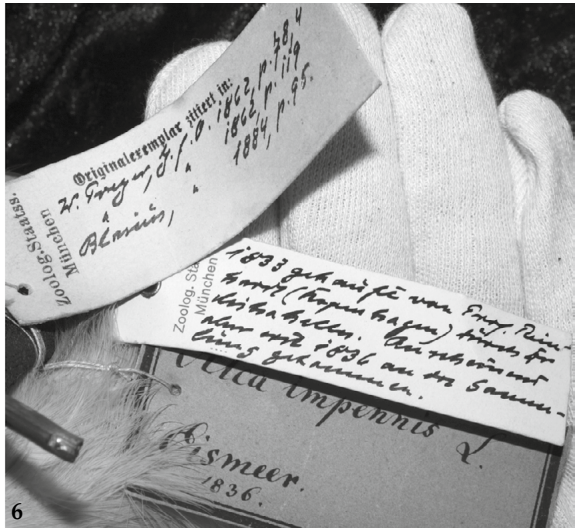 Zoolog. Staatss.
München
Originalexemplar zitiert in:
W. Preyer, J. f. O. 1862, p. 78,4
" " 1862, p. 119
Blasius, " 1884, p. 95.
Zoolog. Sta
München
1833 gekauft von Prof. Rein-
hardt (Kopenhagen) durch
Anscheinend
aber erst 1836 an die Samm-
lung gekommen.
Alca impennis L.
Eismeer.
1836.
6